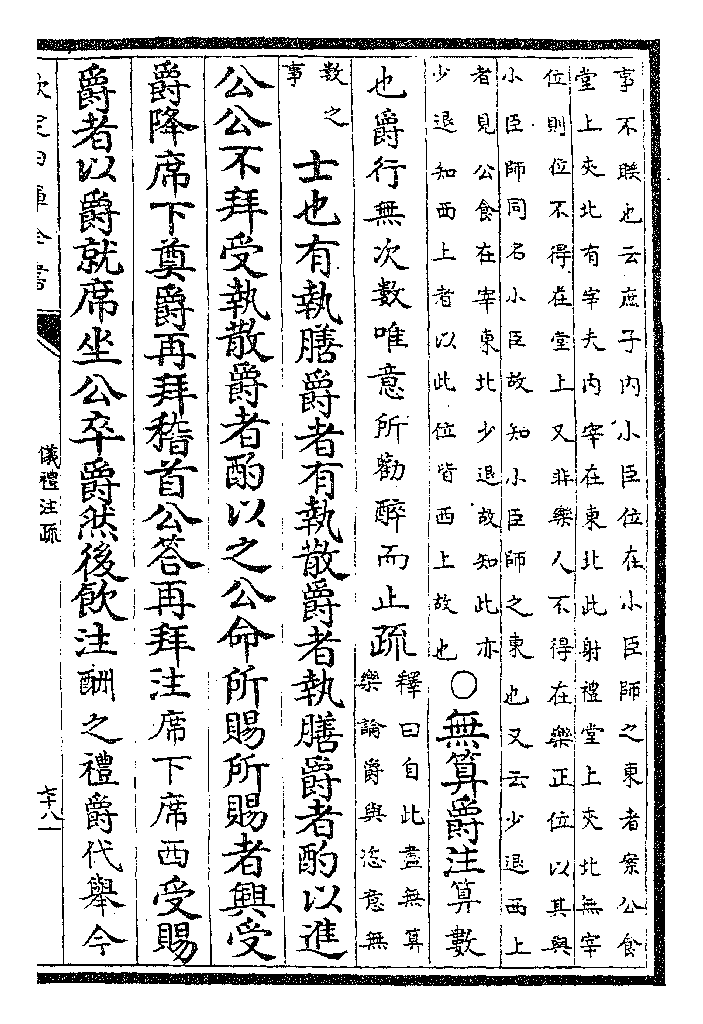 事不聨也云庶子内小臣位在小臣師之東者案公食
堂上夾北有宰夫内宰在東北此射禮堂上夾北無宰
位則位不得在堂上又非樂人不得在樂正位以其與
小臣師同名小臣故知小臣師之東也又云少退西上
者見公食在宰東北少退故知此亦
少退知西上者以此位皆西上故也
○無算爵注算數
也爵行無次數唯意所勸醉而止疏
釋曰自此盡無算
樂論爵與恣意無
數之
事
士也有執膳爵者有執散爵者執膳爵者酌以進
公公不拜受執散爵者酌以之公命所賜所賜者興受
爵降席下奠爵再拜稽首公答再拜注席下席西受賜
爵者以爵就席坐公卒爵然後飲注酬之禮爵代舉今
欽定四庫全書
儀禮注疏
六十八